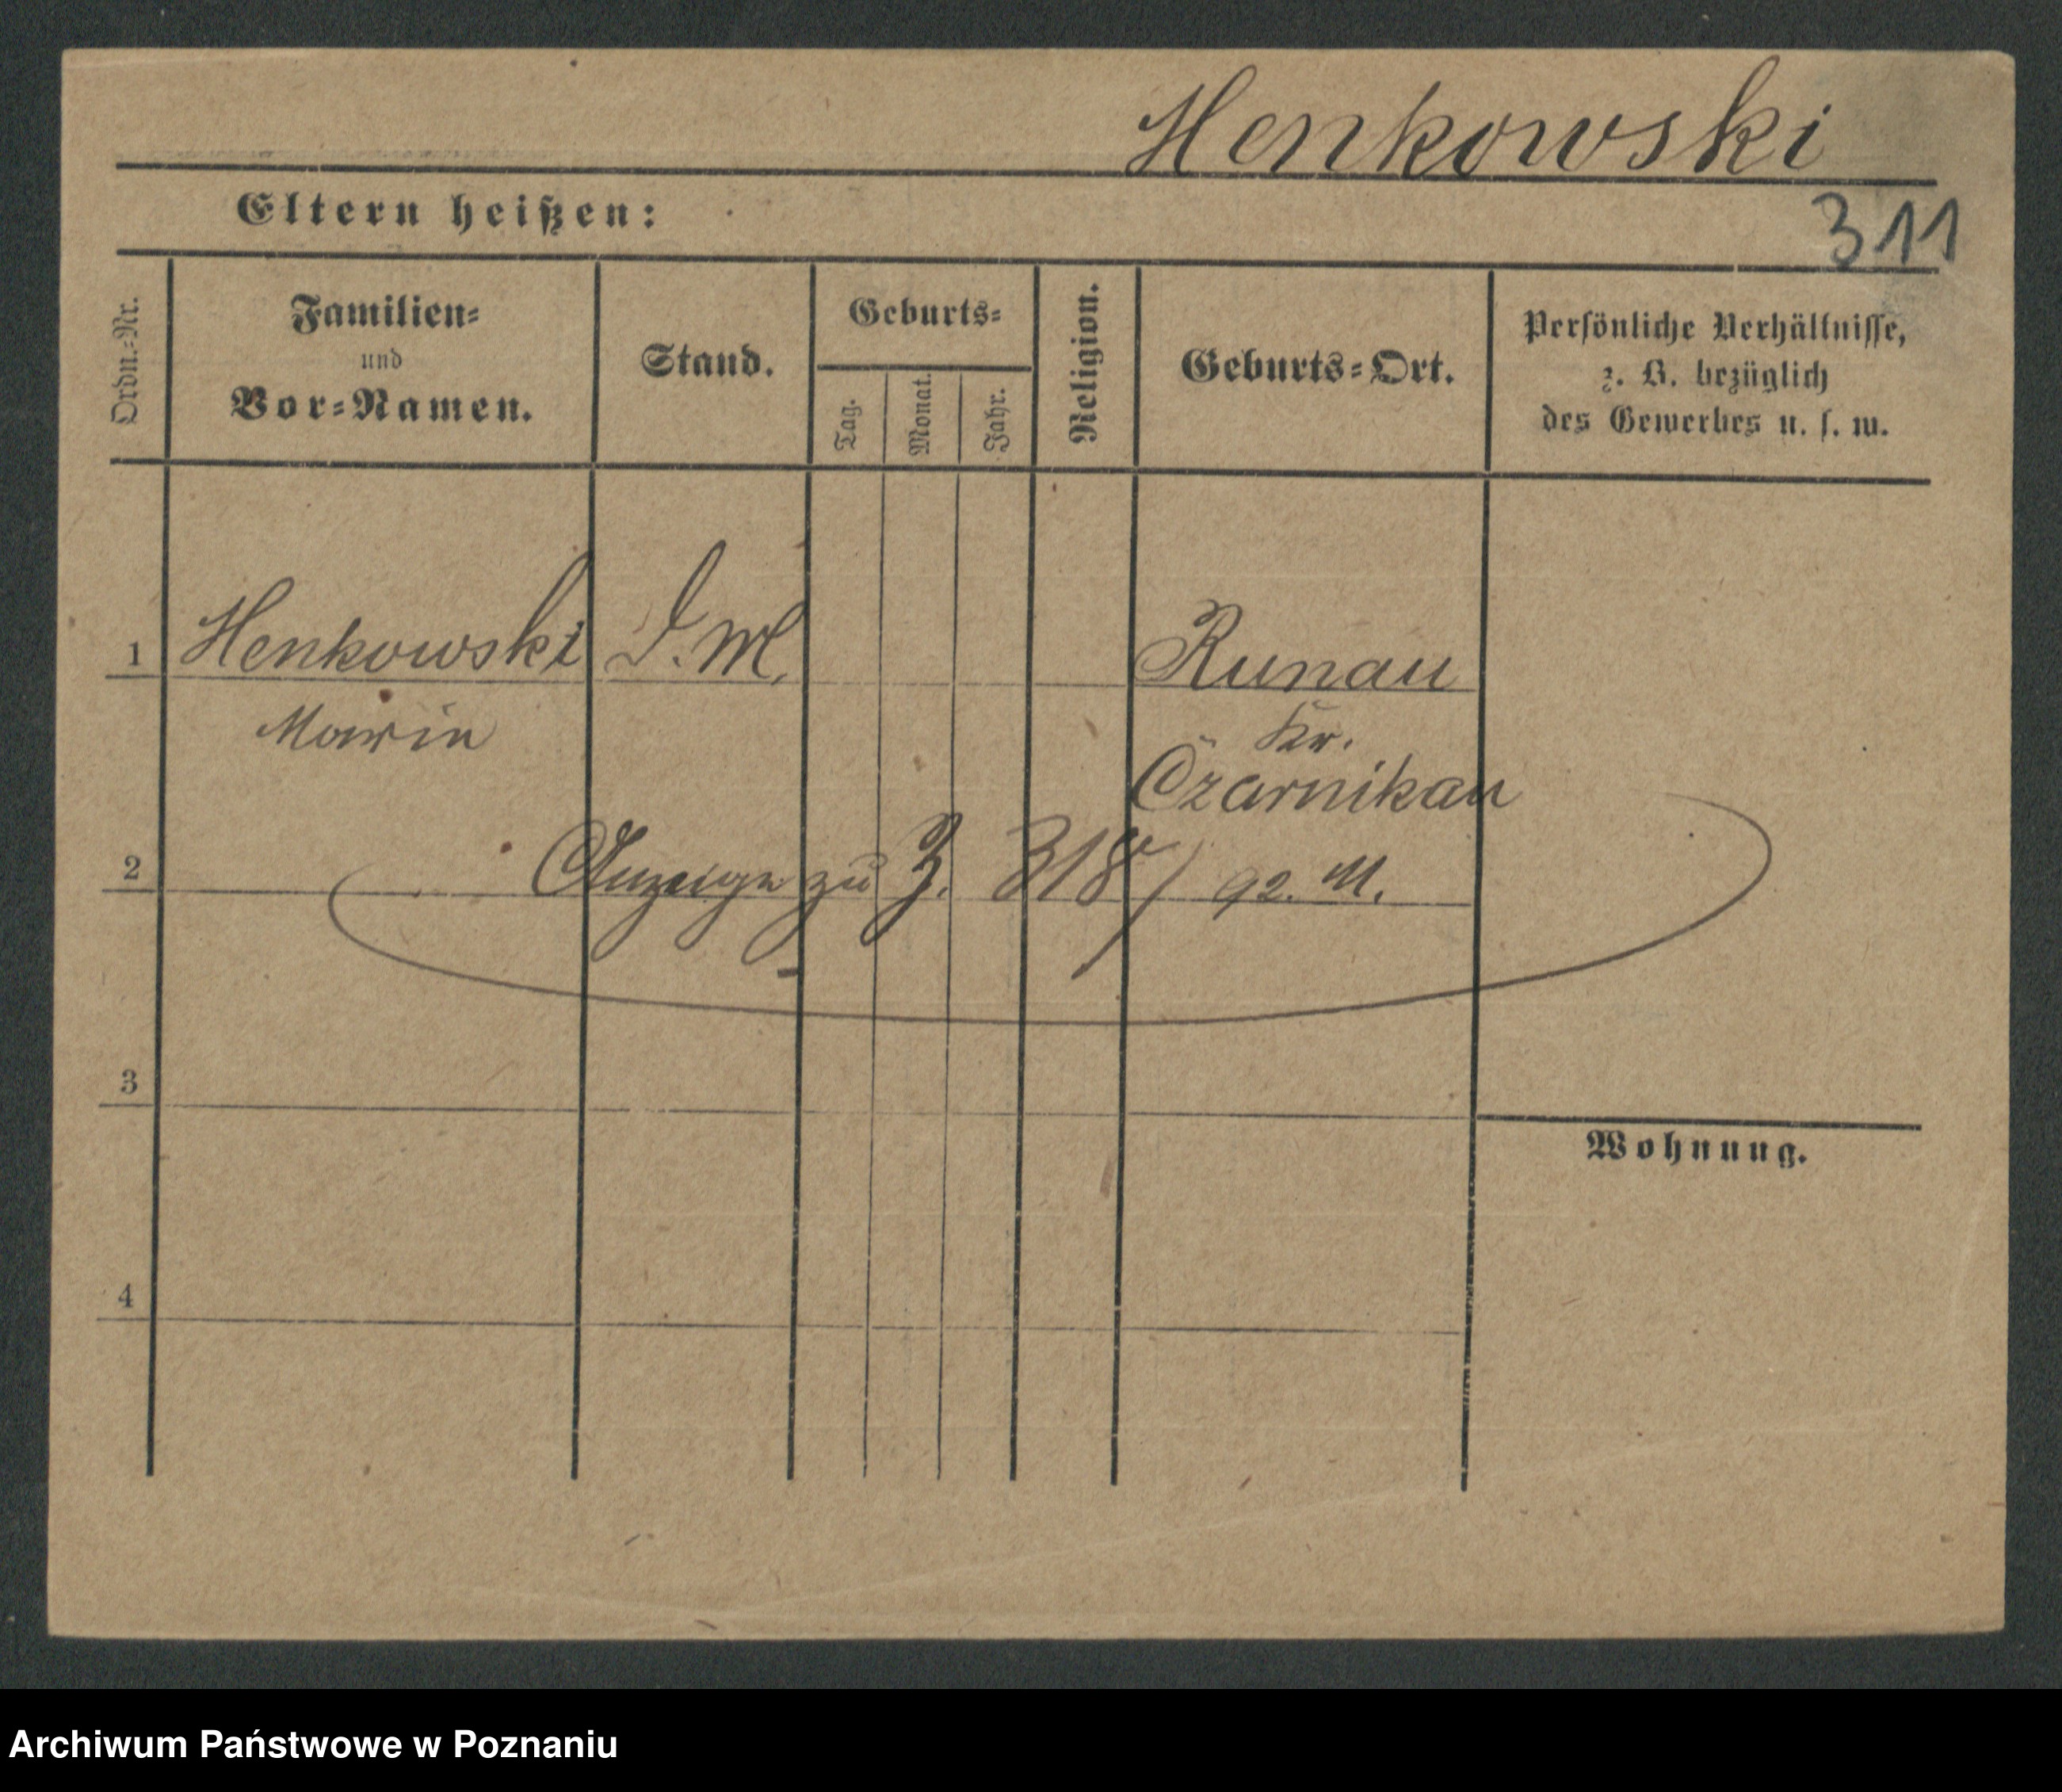 Henkowski
Eltern heißen:
311
Ordn.-Nr.
Familien-
und
Vor-Namen.
Stand.
Geburts-
Tag.
Monat.
Jahr.
Religion.
Geburts-Ort.
Persönliche Verhältnisse,
z. B. bezüglich
des Gewerbes u. s. w.
1 Henkowski D. M. Runau
Marie Kr.
Czarnikau
2 Anzeige zu Z. 318/92. M.
3
Wohnung.
4
Archiwum Państwowe w Poznaniu